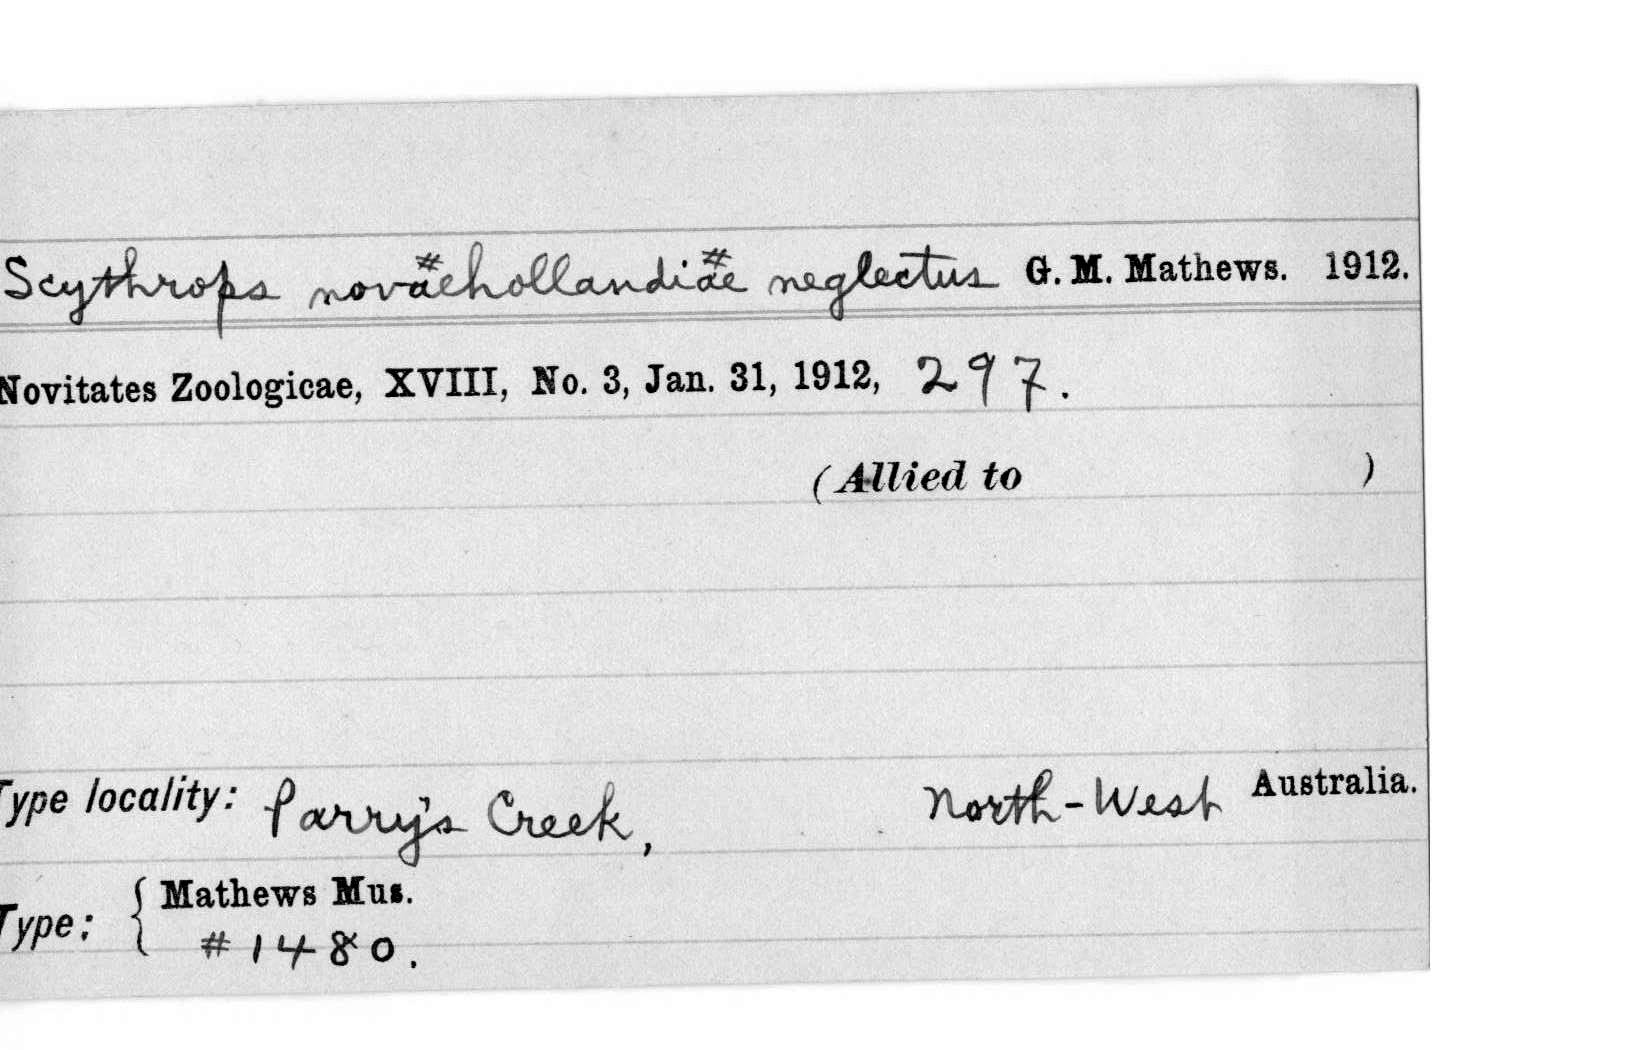 Scythrops novæhollandiæ neglectus G. M. Mathews. 1912.
# #
Novitates Zoologicae, XVIII, No. 3, Jan. 31, 1912, 297.
(Allied to )
Type locality: Parry's Creek, North-West Australia.
Type: { Mathews Mus.
#1480.